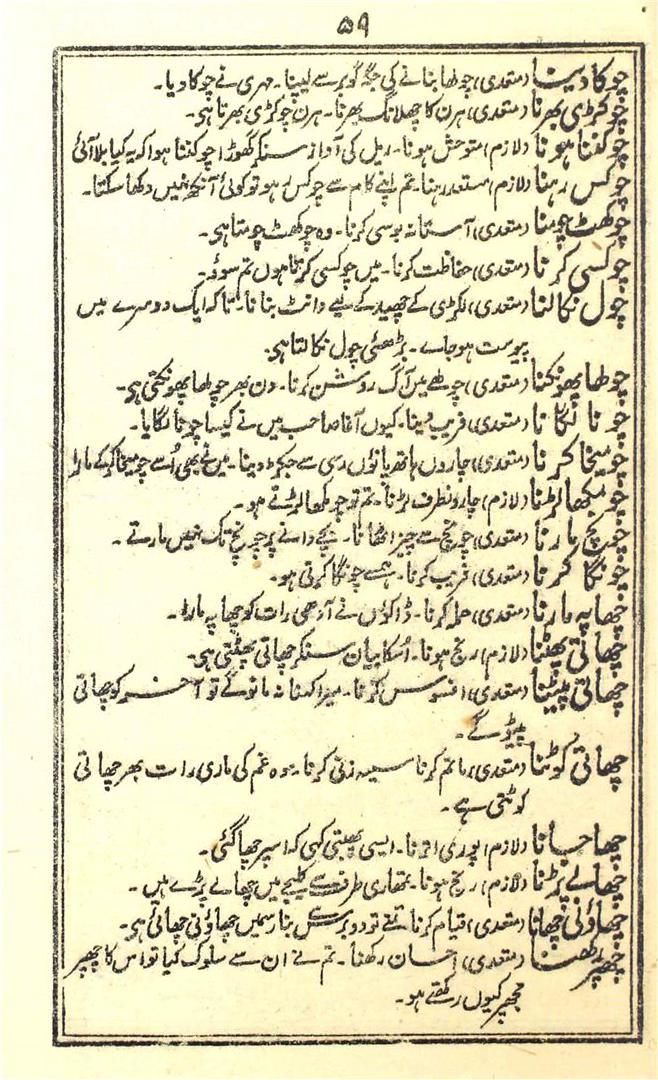 ۵۹
چوکا دینا (متعدی) چولھا بنانے کی جگہ گوبر سے لیپنا۔ مہری نے چوکا دیا۔
چوکڑی بھرنا (متعدی) ہرن کا چھلانگ بھرنا۔ ہرن چوکڑی بھرتا ہی۔
چوکنا ہونا (لازم) متوحش ہونا۔ ریل کی آواز سنکر گھوڑا چوکنا ہوا کہ یہ کیا بلا آئی
چوکس رہنا (لازم) مستعد رہنا۔ تم اپنے کام سے چوکس رہو تو کوئی آنکھ نہیں دکھا سکتا۔
چوکھٹ چومنا (متعدی) آستانہ بوسی کرنا۔ وہ چوکھٹ چومتا ہی۔
چوکسی کرنا (متعدی) حفاظت کرنا۔ میں چوکسی کرتا ہوں تم سوؤ۔
چول نکالنا (متعدی) لکڑی کے چھید کے لیے دانٹ بنانا۔ تاکہ ایک دوسرے میں
پیوست ہو جاے۔ بڑھئی چول نکالتا ہی۔
چولھا پھونکنا (متعدی) چولھے میں آگ روشن کرنا۔ دن بھر چولھا پھونکتی ہی۔
چونا لگانا (متعدی) فریب دینا۔ کیوں آغا صاحب میں نے کیسا چونا لگایا۔
چومیخا کرنا (متعدی) چاروں ہاتھ پاؤں رسی سے جکڑ دینا۔ میں نے بھی اُسے چومیخا کر کے مارا
چومکھا لڑنا (لازم) چار و نطرف لڑنا۔ تم تو چومکھا لڑتے ہو۔
چونچ مارنا (متعدی) چونچ سے چیز اٹھانا۔ بچے دانے پر چونچ تک نہیں مارتے۔
چونگا کرنا (متعدی) فریب کرنا۔ ہمسے چونگا کرتی ہو۔
چھاپہ مارنا (متعدی) حملہ کرنا۔ ڈاکوؤں نے آدھی رات کو چھاپہ مارا۔
چھاتی پھٹنا (لازم) رنج ہونا۔ اُسکا بیان سنکر چھاتی پھٹتی ہی۔
چھاتی پیٹنا (متعدی) افسوس کرنا۔ میرا کہنا نہ مانو گے تو آخر کو چھاتی
پیٹو گے۔
چھاتی کوٹنا (متعدی) ماتم کرنا سینہ زنی کرنا۔ وہ غم کی ماری رات بھر چھاتی
کوٹتی ہے۔
چھا جانا (لازم) پوری اترنا۔ ایسی پھبتی کہی کہ اسپر چھا گئی۔
چھالے پڑنا (لازم) رنج ہونا۔ تمھاری طرف سے کلیجے میں چھالے پڑے ہیں۔
چھاؤنی چھانا (متعدی) قیام کرنا تمنے تو دو برس سے بنارسمیں چھاؤنی چھائی ہی۔
چھپر رکھنا (متعدی) احسان رکھنا۔ تم نے ان سے سلوک کیا تو اس کا چھپر
مجھپر کیوں رکھتے ہو۔